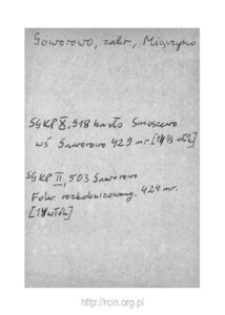 Goworowo, zakr, Miączyno
SGKP X, 918 hasło Smosewo
wś Saworowo 429 mr.
SGKP II, 503 Saworowo
Folw. rozkolonizowany. 424 mr.
http://rcin.org.pl